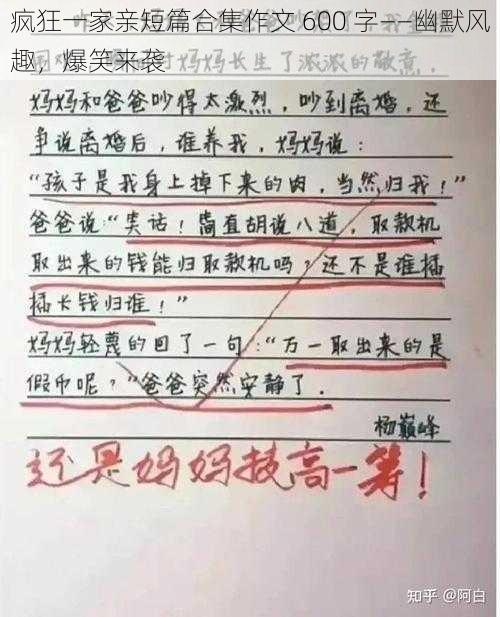 疯狂一家亲短篇合集作文 600 字——幽默风
趣，爆笑来袭
妈妈长生了浓浓的敬意.
妈妈和爸爸吵得太激烈，吵到离婚，还
争说离婚后，谁养我，妈妈说：
“孩子是我身上掉下来的肉，当然归我！”
爸爸说“笑话！简直胡说八道，取款机
取出来的钱能归取款机吗？还不是谁插
插卡钱归谁！”
妈妈轻蔑的回了一句：“万一取出来的是
假币呢，”爸爸突然安静了.
杨巅峰
还是妈妈技高一筹！
知乎 @阿白